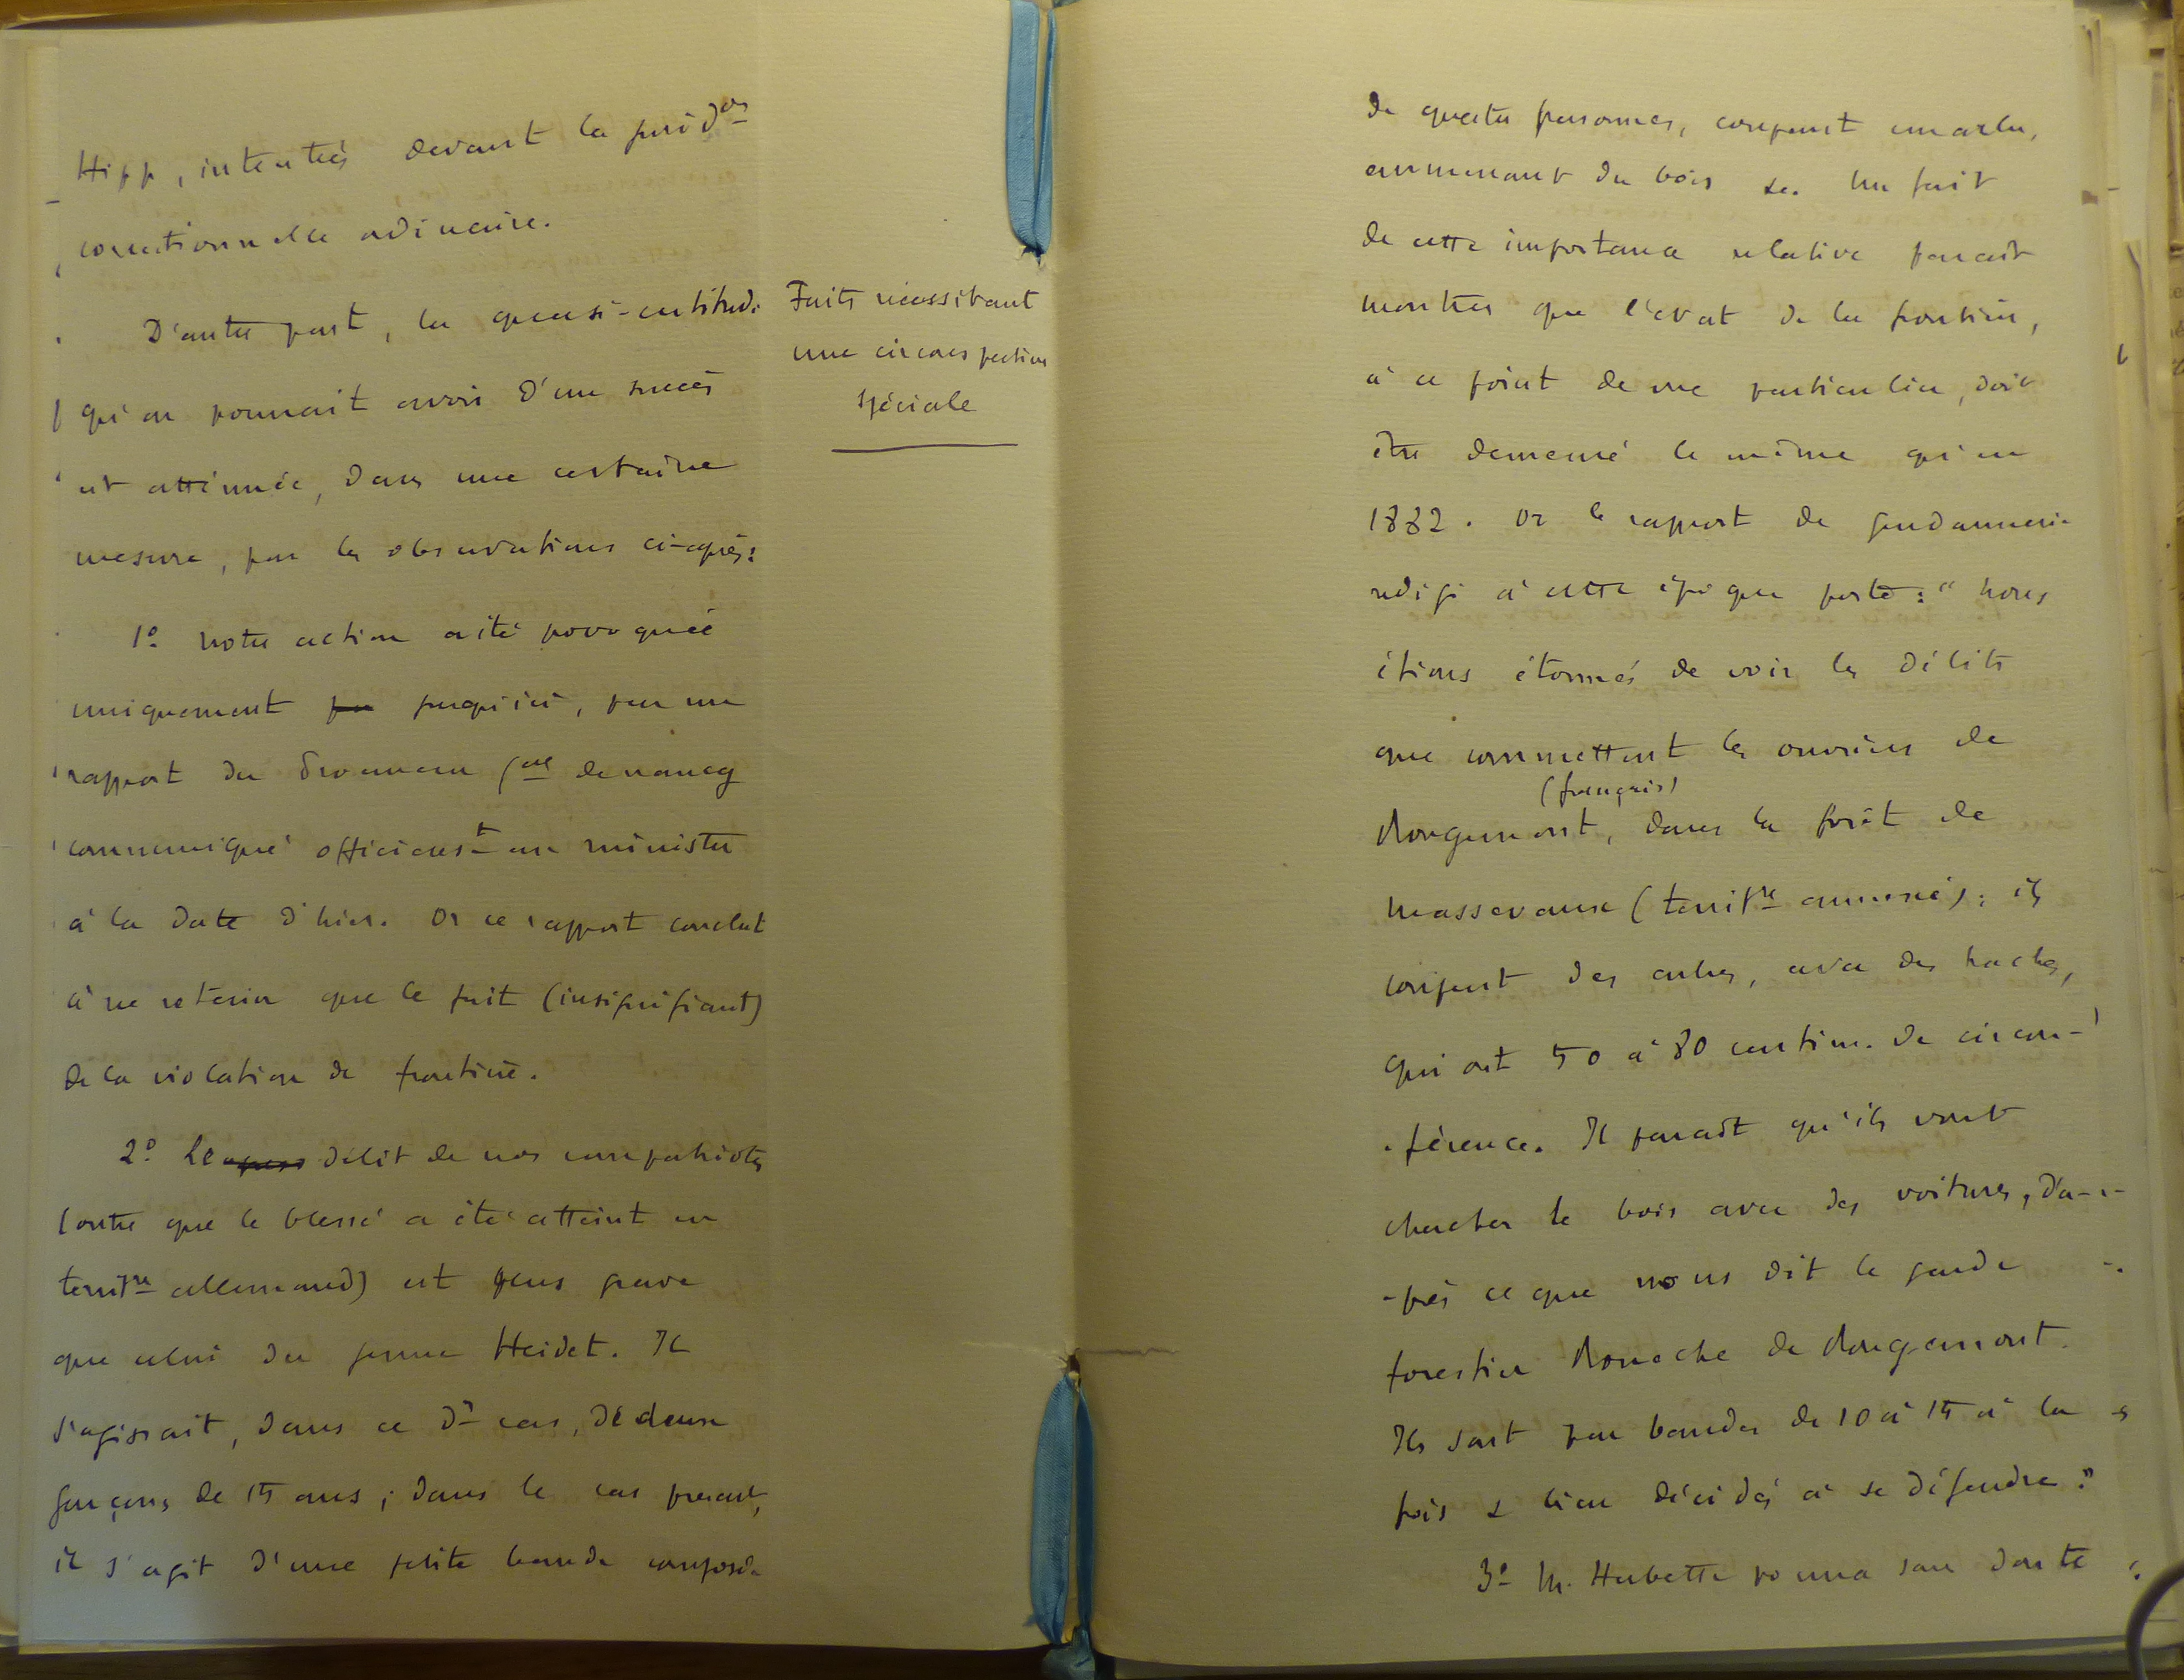 Hipp, intentées devant la jurid^on
correctionnelle ordinaire.
D'autre part, la quasi-certitude
qu'on pourrait avoir d'un succès
est atténuée, dans une certaine
mesure, par les observations ci-après:
1º Notre action a été provoquée
uniquement jusqu'ici, par un
rapport du Procureur G^al de Nancy
communiqué officieus^t au ministre
à la date d'hier. Or ce rapport conclut
à ne retenir que le fait (insignifiant)
de la violation de frontière.
2º Le délit de nos compatriotes
(outre que le blessé a été atteint en
territ^re allemand) est plus grave
que celui du jeune Heidet. Il
s'agissait, dans ce d^r cas, de deux
garçons de 15 ans ; dans le cas présent,
il s'agit d'une petite bande composée
Faits nécessitant
une circonspection
spéciale
de quatre personnes, coupant un arbre,
emmenant du bois &c. Un fait
de cette importance relative paraît
montrer que l'état de la frontière,
à ce point de vue particulier, doit
être demeuré le même qu'en
1882. Or le rapport de gendarmerie
rédigé à cette époque porte : "Nous
étions étonnés de voir les délits
que commettent les ouvriers de
(français)
Rougemont, dans la forêt de
Massevaux (territ^re annexé) ; ils
coupent des arbres, avec des haches,
qui ont 50 à 80 centim. de circon-
-férence. Il paraît qu'ils vont
chercher le bois avec des voitures, d'a-
-près ce que nous dit le garde
forestier de Rougemont.
Ils sont par bandes de 10 à 15 à la
fois & bien décidés à se défendre."
3º M. Herbette pourra sans doute